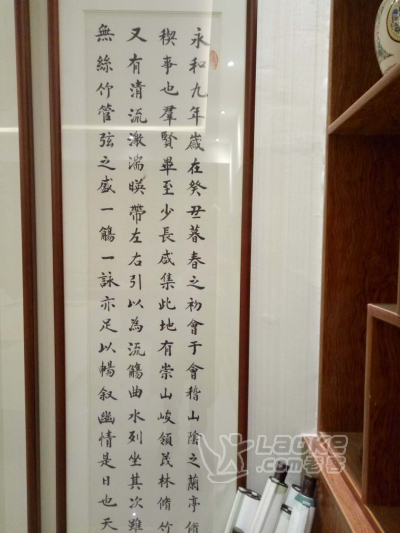 永和九年歲在癸丑暮春之初會于會稽山陰之蘭亭脩
稧事也羣賢畢至少長咸集此地有崇山峻領茂林脩竹
又有清流激湍暎帶左右引以為流觴曲水列坐其次雖
無絲竹管弦之盛一觴一詠亦足以暢叙幽情是日也天
LaoKe
.com老客